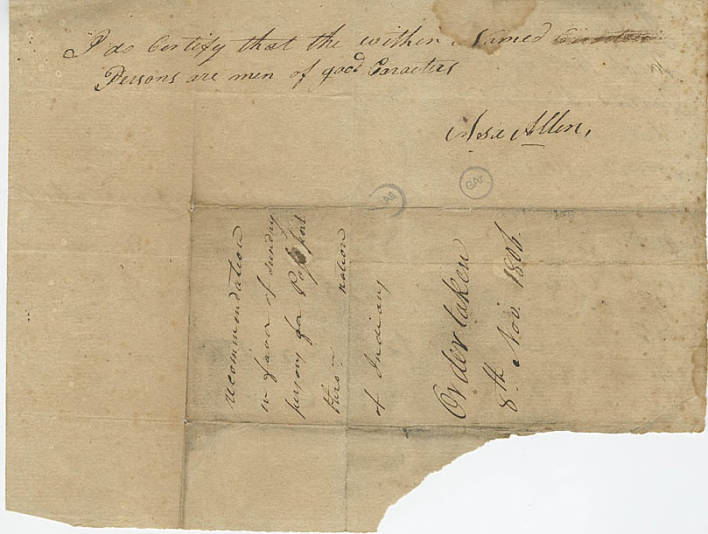 I do Certify that the within Named
Persons are men of good Caracters
Asa Allen,
GAr
Ag
recommendation
in favor of sundry
persons for Passport
thro nation
of Indians
Order taken
8th Nov. 1806.